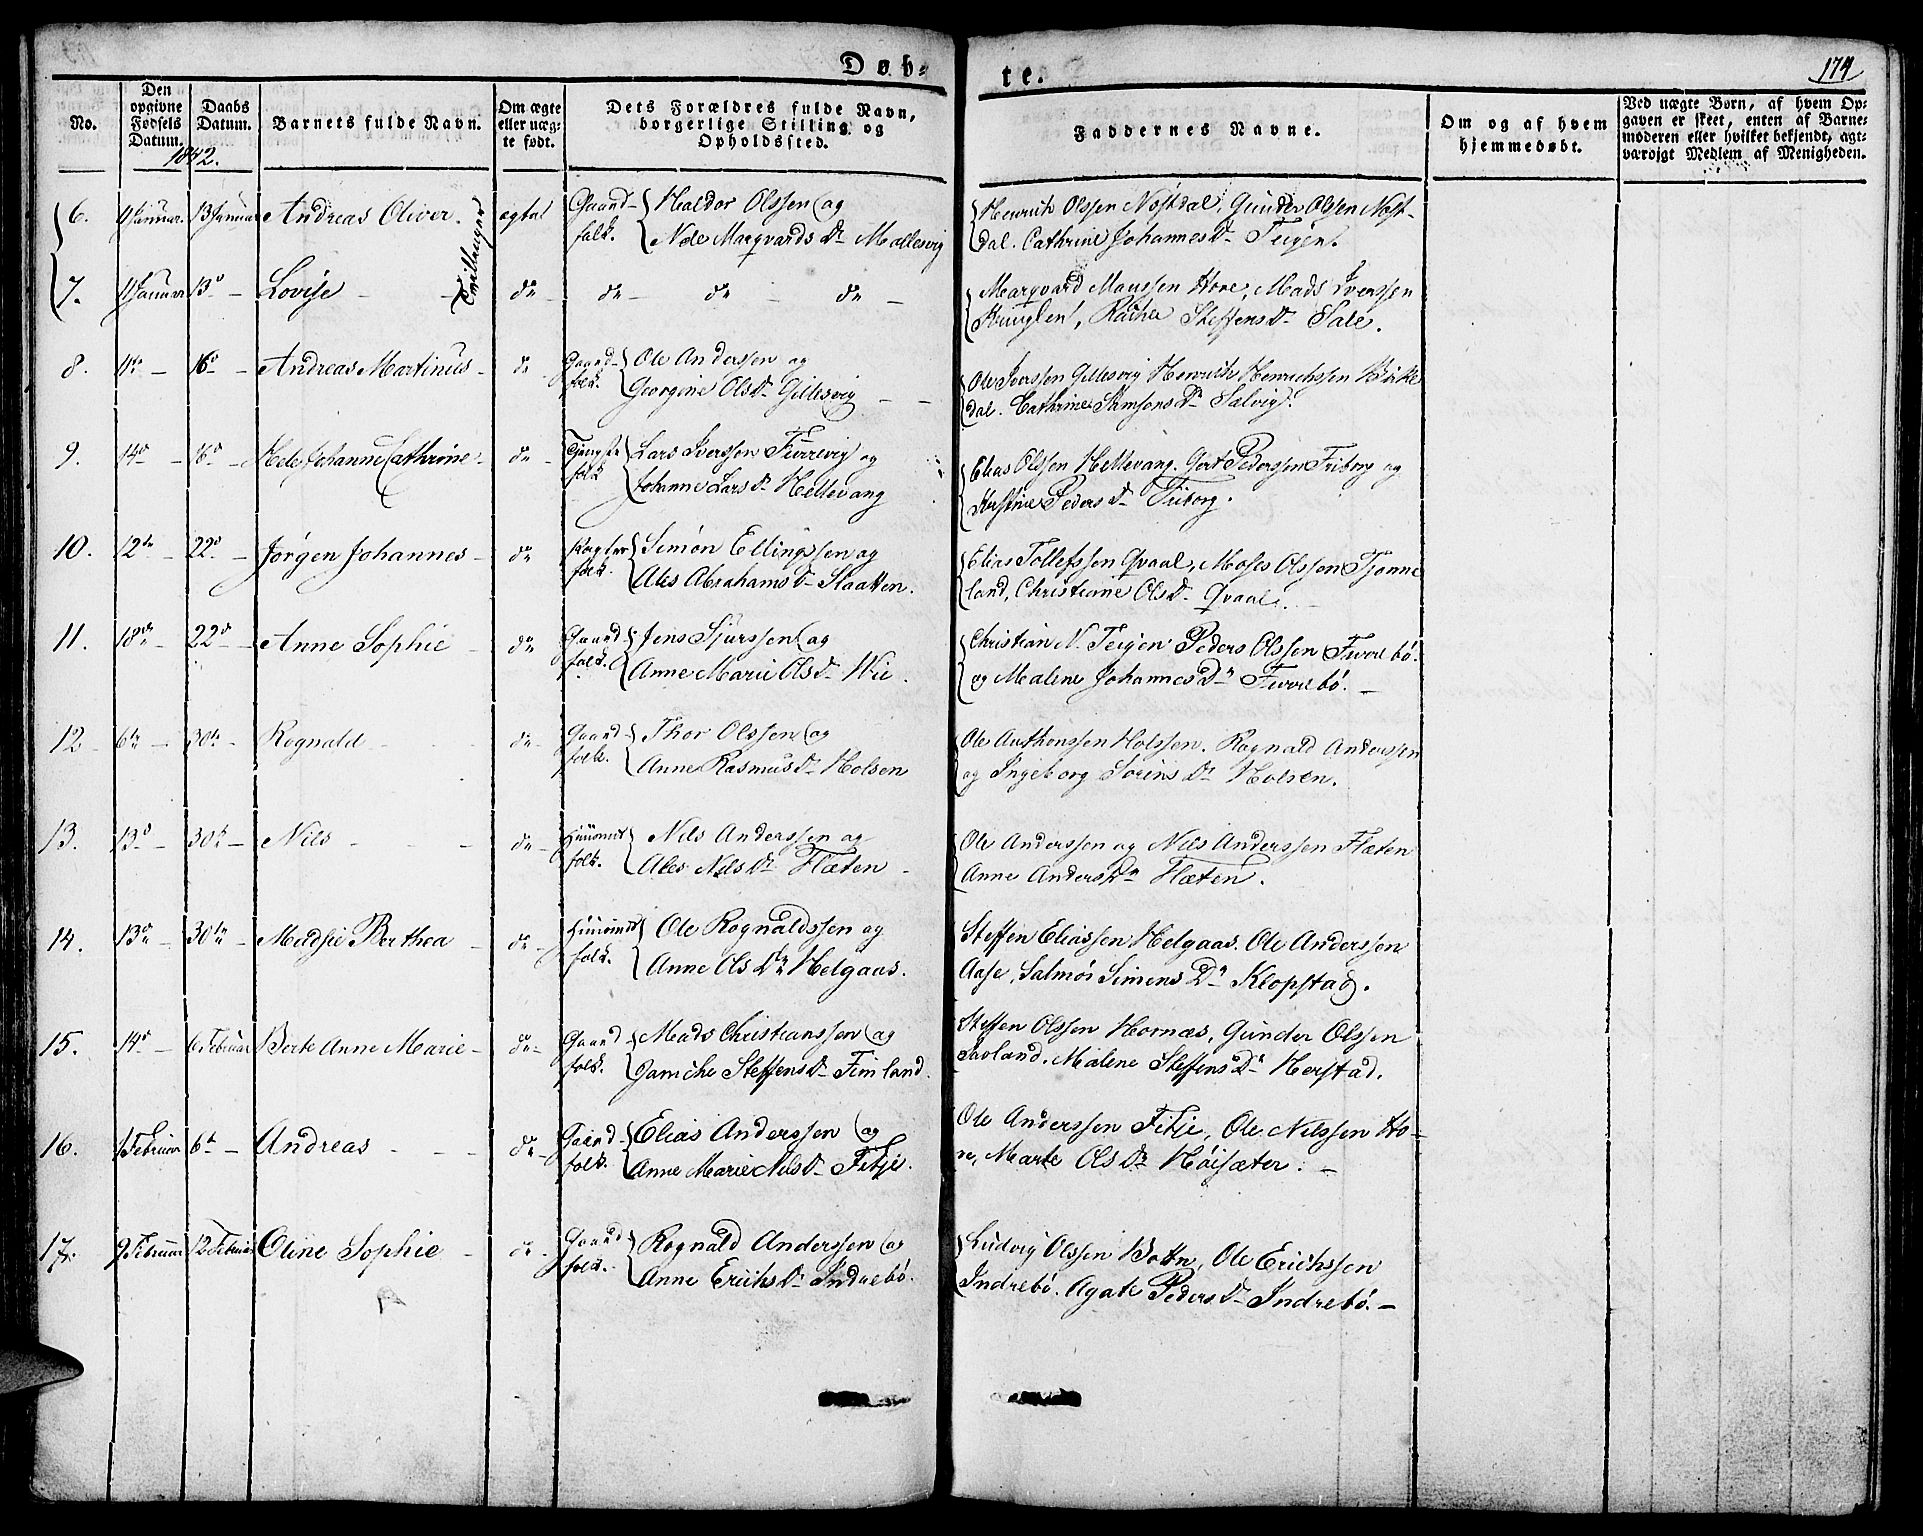 Døb-
te.
174
No.
Den
opgivne
Fødsels
Datum.
Daabs
Datum.
Barnets fulde Navn.
Om ægte
eller uæg-
te født.
Dets Forældres fulde Navn,
borgerlige Stilling og
Opholdssted.
Faddernes Navne.
Om og af hvem
hjemmedøbt.
Ved uægte Børn, af hvem Op-
gaven er skeet, enten af Barne-
moderen eller hvilket bekjendt, agt-
værdigt Medlem af Menigheden.
1842.
6. Januar. 13 Januar Andreas Oliver. Tvillinger ægte Gaard- Haldor Olssen og
folk. Marqvards Dr
Henrich Olssen Nøstdal, Gunder Olssen Nøst-
dal. Cathrine Johannes Dr Teigen.
7. Januar 13d — Lovise — de — de — de — de —
Marqvard Monssen Hove, Mads Iverssen
Steffens Dr Sale.
8. — 16d — Andreas Martinus — de — Gaard- Ole Anderssen og
folk. Georgine Ols Dr Gillesvig —
Ole Iverssen Gillesvig Henrich Henrichssen Birke
dal. Cathrine Samsons Dr Salvig.
9. 14d — 16d — Johanne Cathrine — de — Lars Iverssen Furrevig og
folk Johanne Lars Dr Hellevang
Elias Olssen Hellevang. Gert Pederssen Friborg og
Peders Dr Friborg.
10. 12te — 22d — Jørgen Johannes — de Simon Ellingssen og
folk. Ales Abrahams Dr Slaatten.
Elias Tollefssen Qvaal, Moses Olssen Tjønne
land, Christiane Ols Dr Qvaal. —
11. 18de — 22d — Anne Sophie — de Gaard- Jens Sjurssen og
folk. Anne Marie Ols Dr Wie.
Christian N. Teigen Peder Olssen Furrebø.
og Malene Johannes Dr Furrebø. —
12 — 6te — 30te — Rognald — de — Gaard- Thor Olssen og
folk. Anne Rasmus Dr Holsen
Ole Anthonssen Holssen. Rognald Anderssen
og Ingeborg Sørens Dr Holsen.
13. 13d — 30te — Nils — de — Huusmd Nils Anderssen og
folk. Ales Nils Dr Flæten —
Ole Anderssen og Nils Anderssen Flæten
Anne Anders Dr Flæten.
14. 13de — 30te — Madsie Berthea — de — Huusmd Ole Rognaldssen og
folk. Anne Ols Dr Helgaas.
Steffen Eliassen Helgaas. Ole Anderssen
Aase, Simens Dr Klopstad.
15. 14d — 6 Februar Berte Anne Marie — de — Gaard Mads Christianssen og
folk. Janiche Steffens Dr Fimland.
Steffen Olssen Hornæs, Gunder Olssen
Malene Steffens Dr Herstad.
16. 1 Februar 6te — Andreas — de — Gaard- Elias Anderssen og
folk. Anne Marie Nils Dr Fitje.
Ole Anderssen Fitje, Ole Nilssen Ho-
ve, Marte Ols Dr Høisæter. —
17. 9 Februar 12 Februar Oline Sophie — de — Gaard Rognald Anderssen og
folk. Anne Erichs Dr Indrebø.
Ludvig Olssen Botn, Ole Erichssen
Indrebø. Agate Peders Dr Indrebø. —